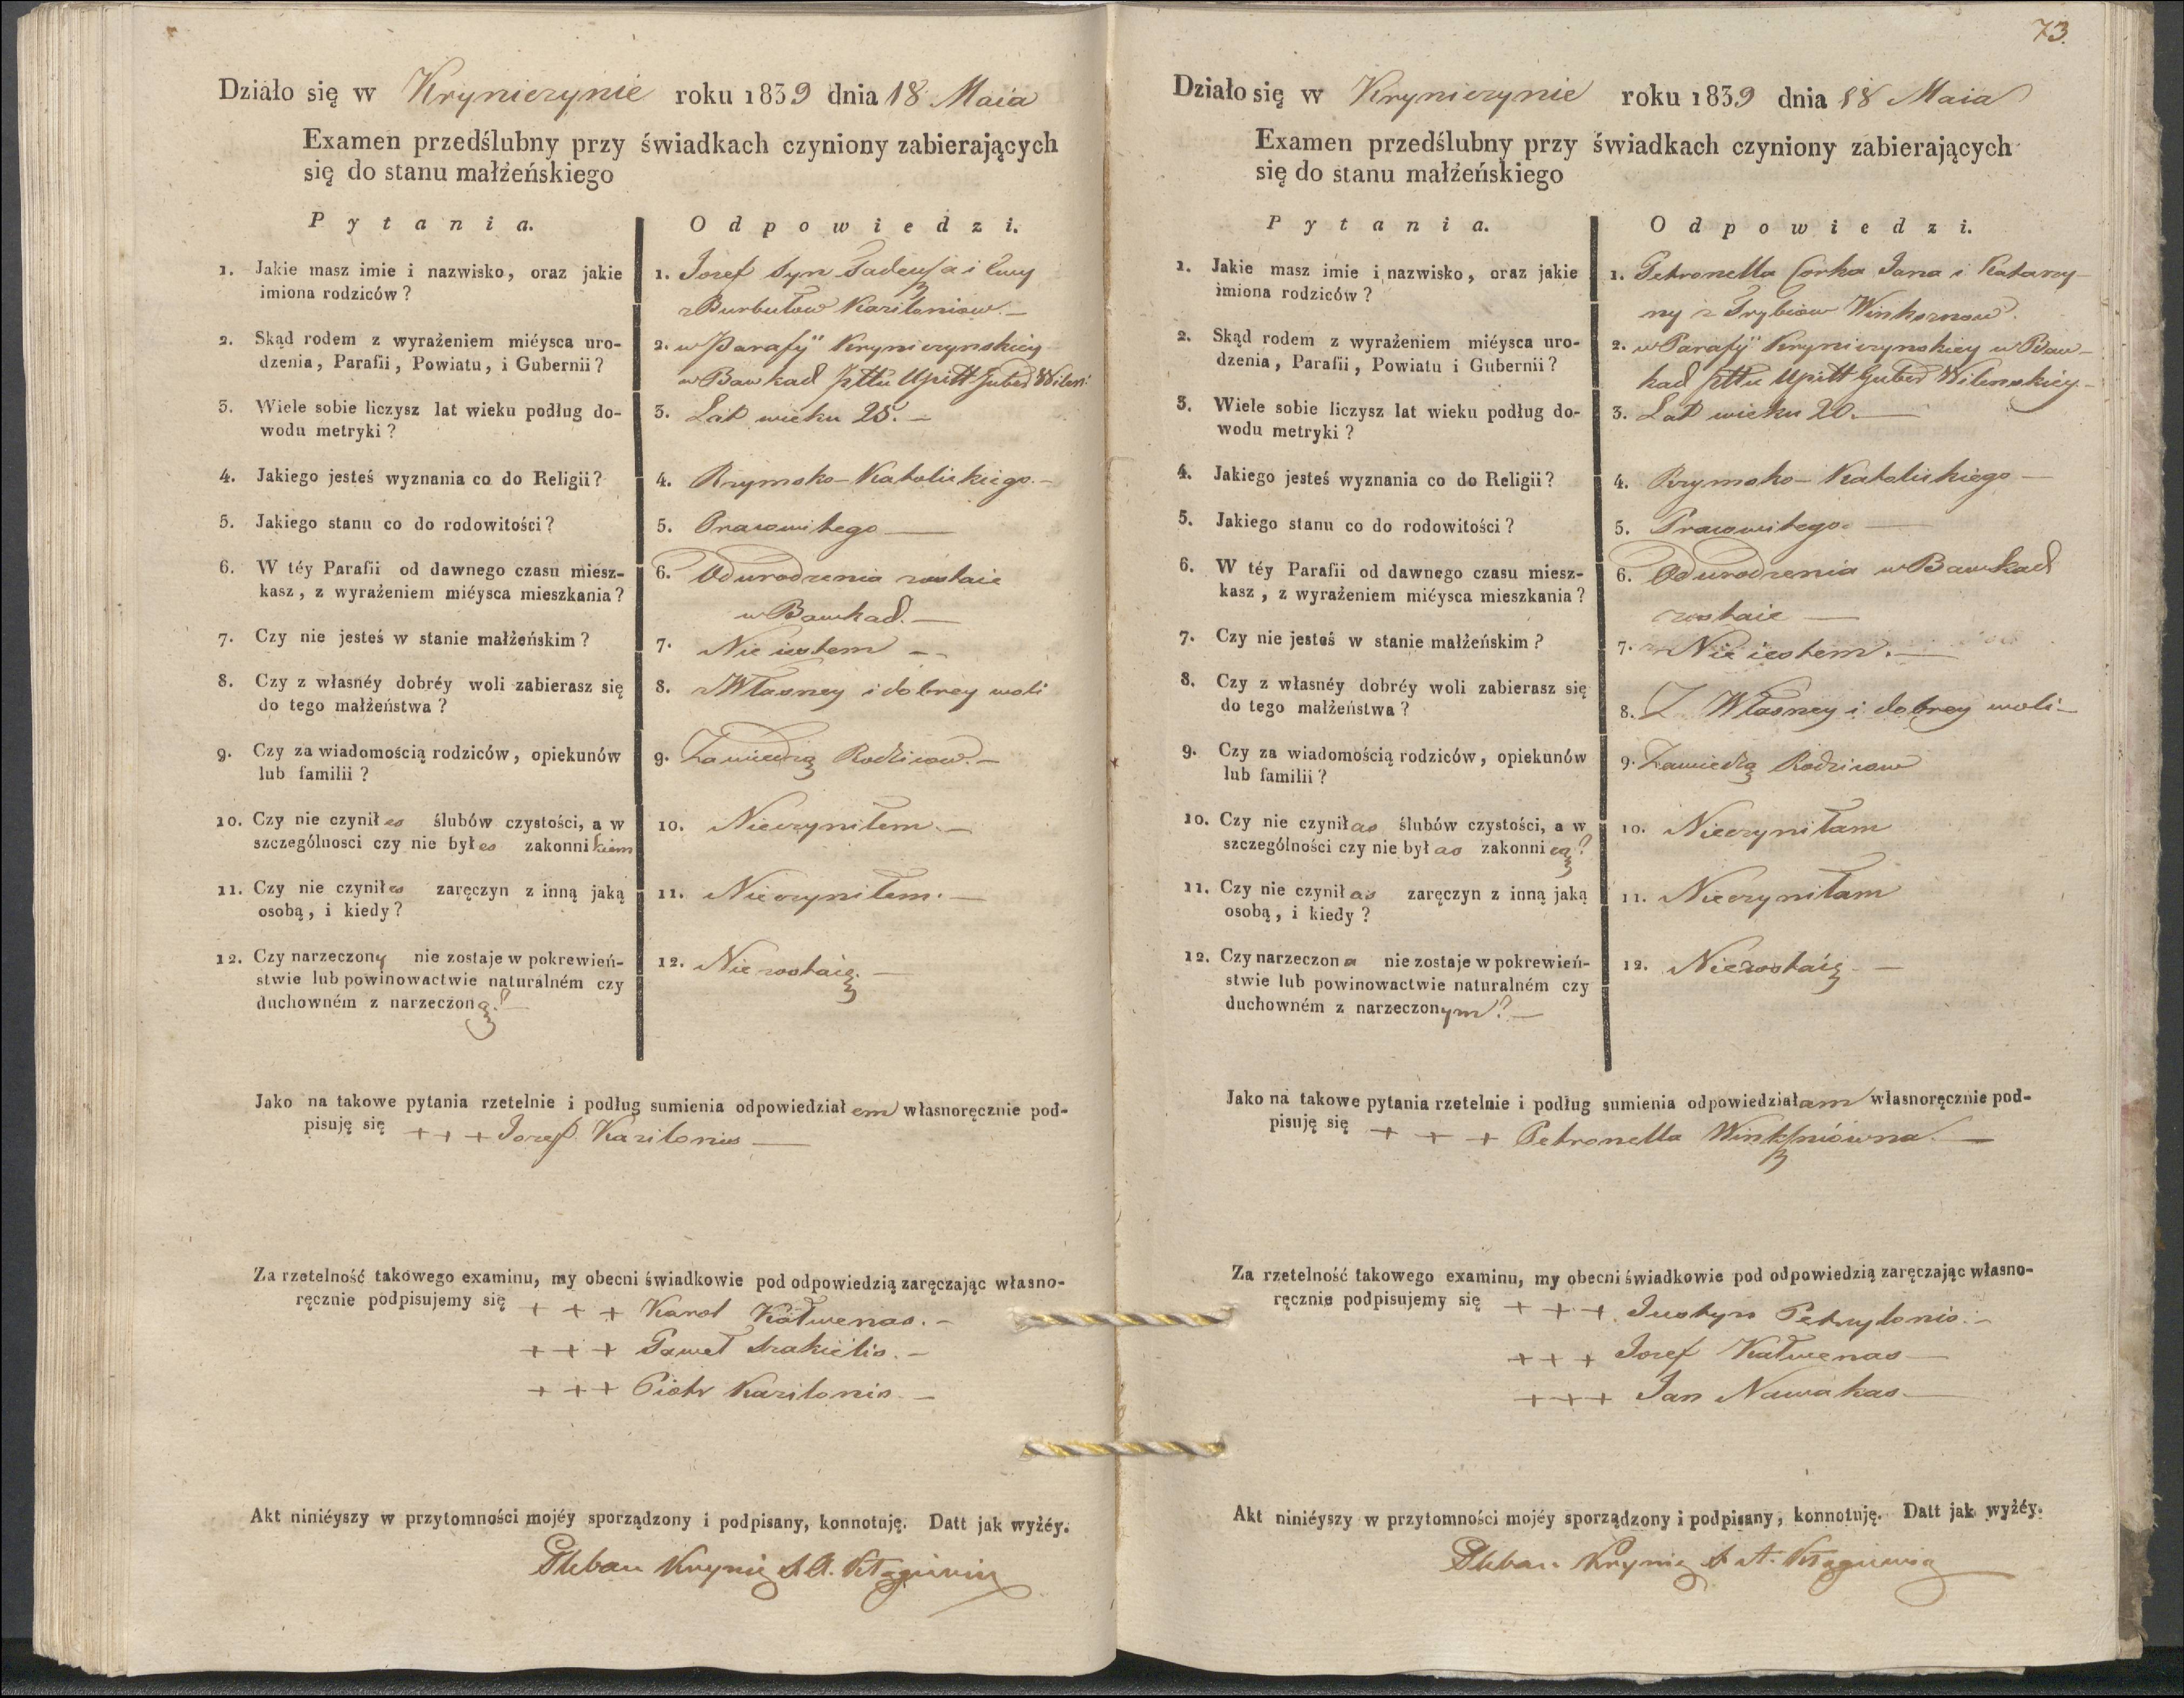 Działo się w Kryniczynie roku 1839 dnia 18 Maia
Examen przedślubny przy świadkach czyniony zabierających
się do stanu małżeńskiego
Pytania. Odpowiedzi.
1. Jakie masz imie i nazwisko, oraz jakie
imiona rodziców?
1. Jozef Syn Tadeusza i Ewy
z Burbułow Kaziloniow.—
2. Skąd rodem z wyrażeniem miéysca uro-
dzenia, Parafii, Powiatu, i Gubernii?
2. w Parafÿ Kryniczynskiey
w Bawkach pttu Upitt Guber Wilen:
3. Wiele sobie liczysz lat wieku podług do-
wodu metryki?
3. Lat wieku 25.—
4. Jakiego jesteś wyznania co do Religii?
4. Rzymsko-Katolickiego.—
5. Jakiego stanu co do rodowitości?
5. Pracowitego—
6. W téy Parafii od dawnego czasu miesz-
kasz, z wyrażeniem miéysca mieszkania?
6. Od urodzenia zostaie
w Bawkach.—
7. Czy nie jesteś w stanie małżeńskim?
7. Nie iestem—
8. Czy z własnéy dobréy woli zabierasz się
do tego małżeństwa?
8. z Własney i dobrey woli
9. Czy za wiadomością rodziców, opiekunów
lub familii?
9. Zawiedzą Rodzicow.—
10. Czy nie czyniłes ślubów czystości, a w
szczególnosci czy nie byłes zakonnikiem
10. Nieczyniłem.—
11. Czy nie czyniłes zaręczyn z inną jaką
osobą, i kiedy?
11. Nieczyniłem.—
12. Czy narzeczony nie zostaje w pokrewień-
stwie lub powinowactwie naturalném czy
duchowném z narzeczoną?—
12. Nie zostaię.—
Jako na takowe pytania rzetelnie i podług sumienia odpowiedziałem własnoręcznie pod-
pisuję się + + + Jozef Kazilonis—
Za rzetelność takowego examinu, my obecni świadkowie pod odpowiedzią zaręczając własno-
ręcznie podpisujemy się + + + Karol Kołwenas.—
+ + + Paweł
+ + + Piotr Kazilonis.—
Akt niniéyszy w przytomności mojéy sporządzony i podpisany, konnotuję. Datt jak wyżéy.
Pleban Krynicz
73.
Działo się w Kryniczynie roku 1839 dnia 18 Maia
Examen przedślubny przy świadkach czyniony zabierających
się do stanu małżeńskiego
Pytania. Odpowiedzi.
1. Jakie masz imie i nazwisko, oraz jakie
imiona rodziców?
1. Petronella Corka Jana i Katarzy-
ny z Trybiow
2. Skąd rodem z wyrażeniem miéysca uro-
dzenia, Parafii, Powiatu i Gubernii?
2. w Parafÿ Kryniczynskiey w Baw-
kach pttu Upitt Guber Wilenskiey.—
3. Wiele sobie liczysz lat wieku podług do-
wodu metryki?
3. Lat wieku 20.—
4. Jakiego jesteś wyznania co do Religii?
4. Rzymsko-Katolickiego—
5. Jakiego stanu co do rodowitości?
5. Pracowitego.—
6. W téy Parafii od dawnego czasu miesz-
kasz, z wyrażeniem miéysca mieszkania?
6. Od urodzenia w Bawkach
zostaie—
7. Czy nie jesteś w stanie małżeńskim?
7. Nie iestem.—
8. Czy z własnéy dobréy woli zabierasz się
do tego małżeństwa?
8. Z Własney i dobrey woli—
9. Czy za wiadomością rodziców, opiekunów
lub familii?
9. Zawiedzą Rodzicow
10. Czy nie czyniłas ślubów czystości, a w
szczególności czy nie byłas zakonnicą?
10. Nieczyniłam
11. Czy nie czyniłas zaręczyn z inną jaką
osobą, i kiedy?
11. Nieczyniłam
12. Czy narzeczona nie zostaje w pokrewień-
stwie lub powinowactwie naturalném czy
duchowném z narzeczonym?—
12. Niezostaię.—
Jako na takowe pytania rzetelnie i podług sumienia odpowiedziałam własnoręcznie pod-
pisuję się + + + Petronella Winkszniówna.—
Za rzetelność takowego examinu, my obecni świadkowie pod odpowiedzią zaręczając własno-
ręcznie podpisujemy się + + + Justyn Petrylonis.—
+ + + Jozef Kałwenas—
+ + + Jan Nawakas—
Akt niniéyszy w przytomności mojéy sporządzony i podpisany, konnotuję. Datt jak wyżéy.
Pleban Krynicz